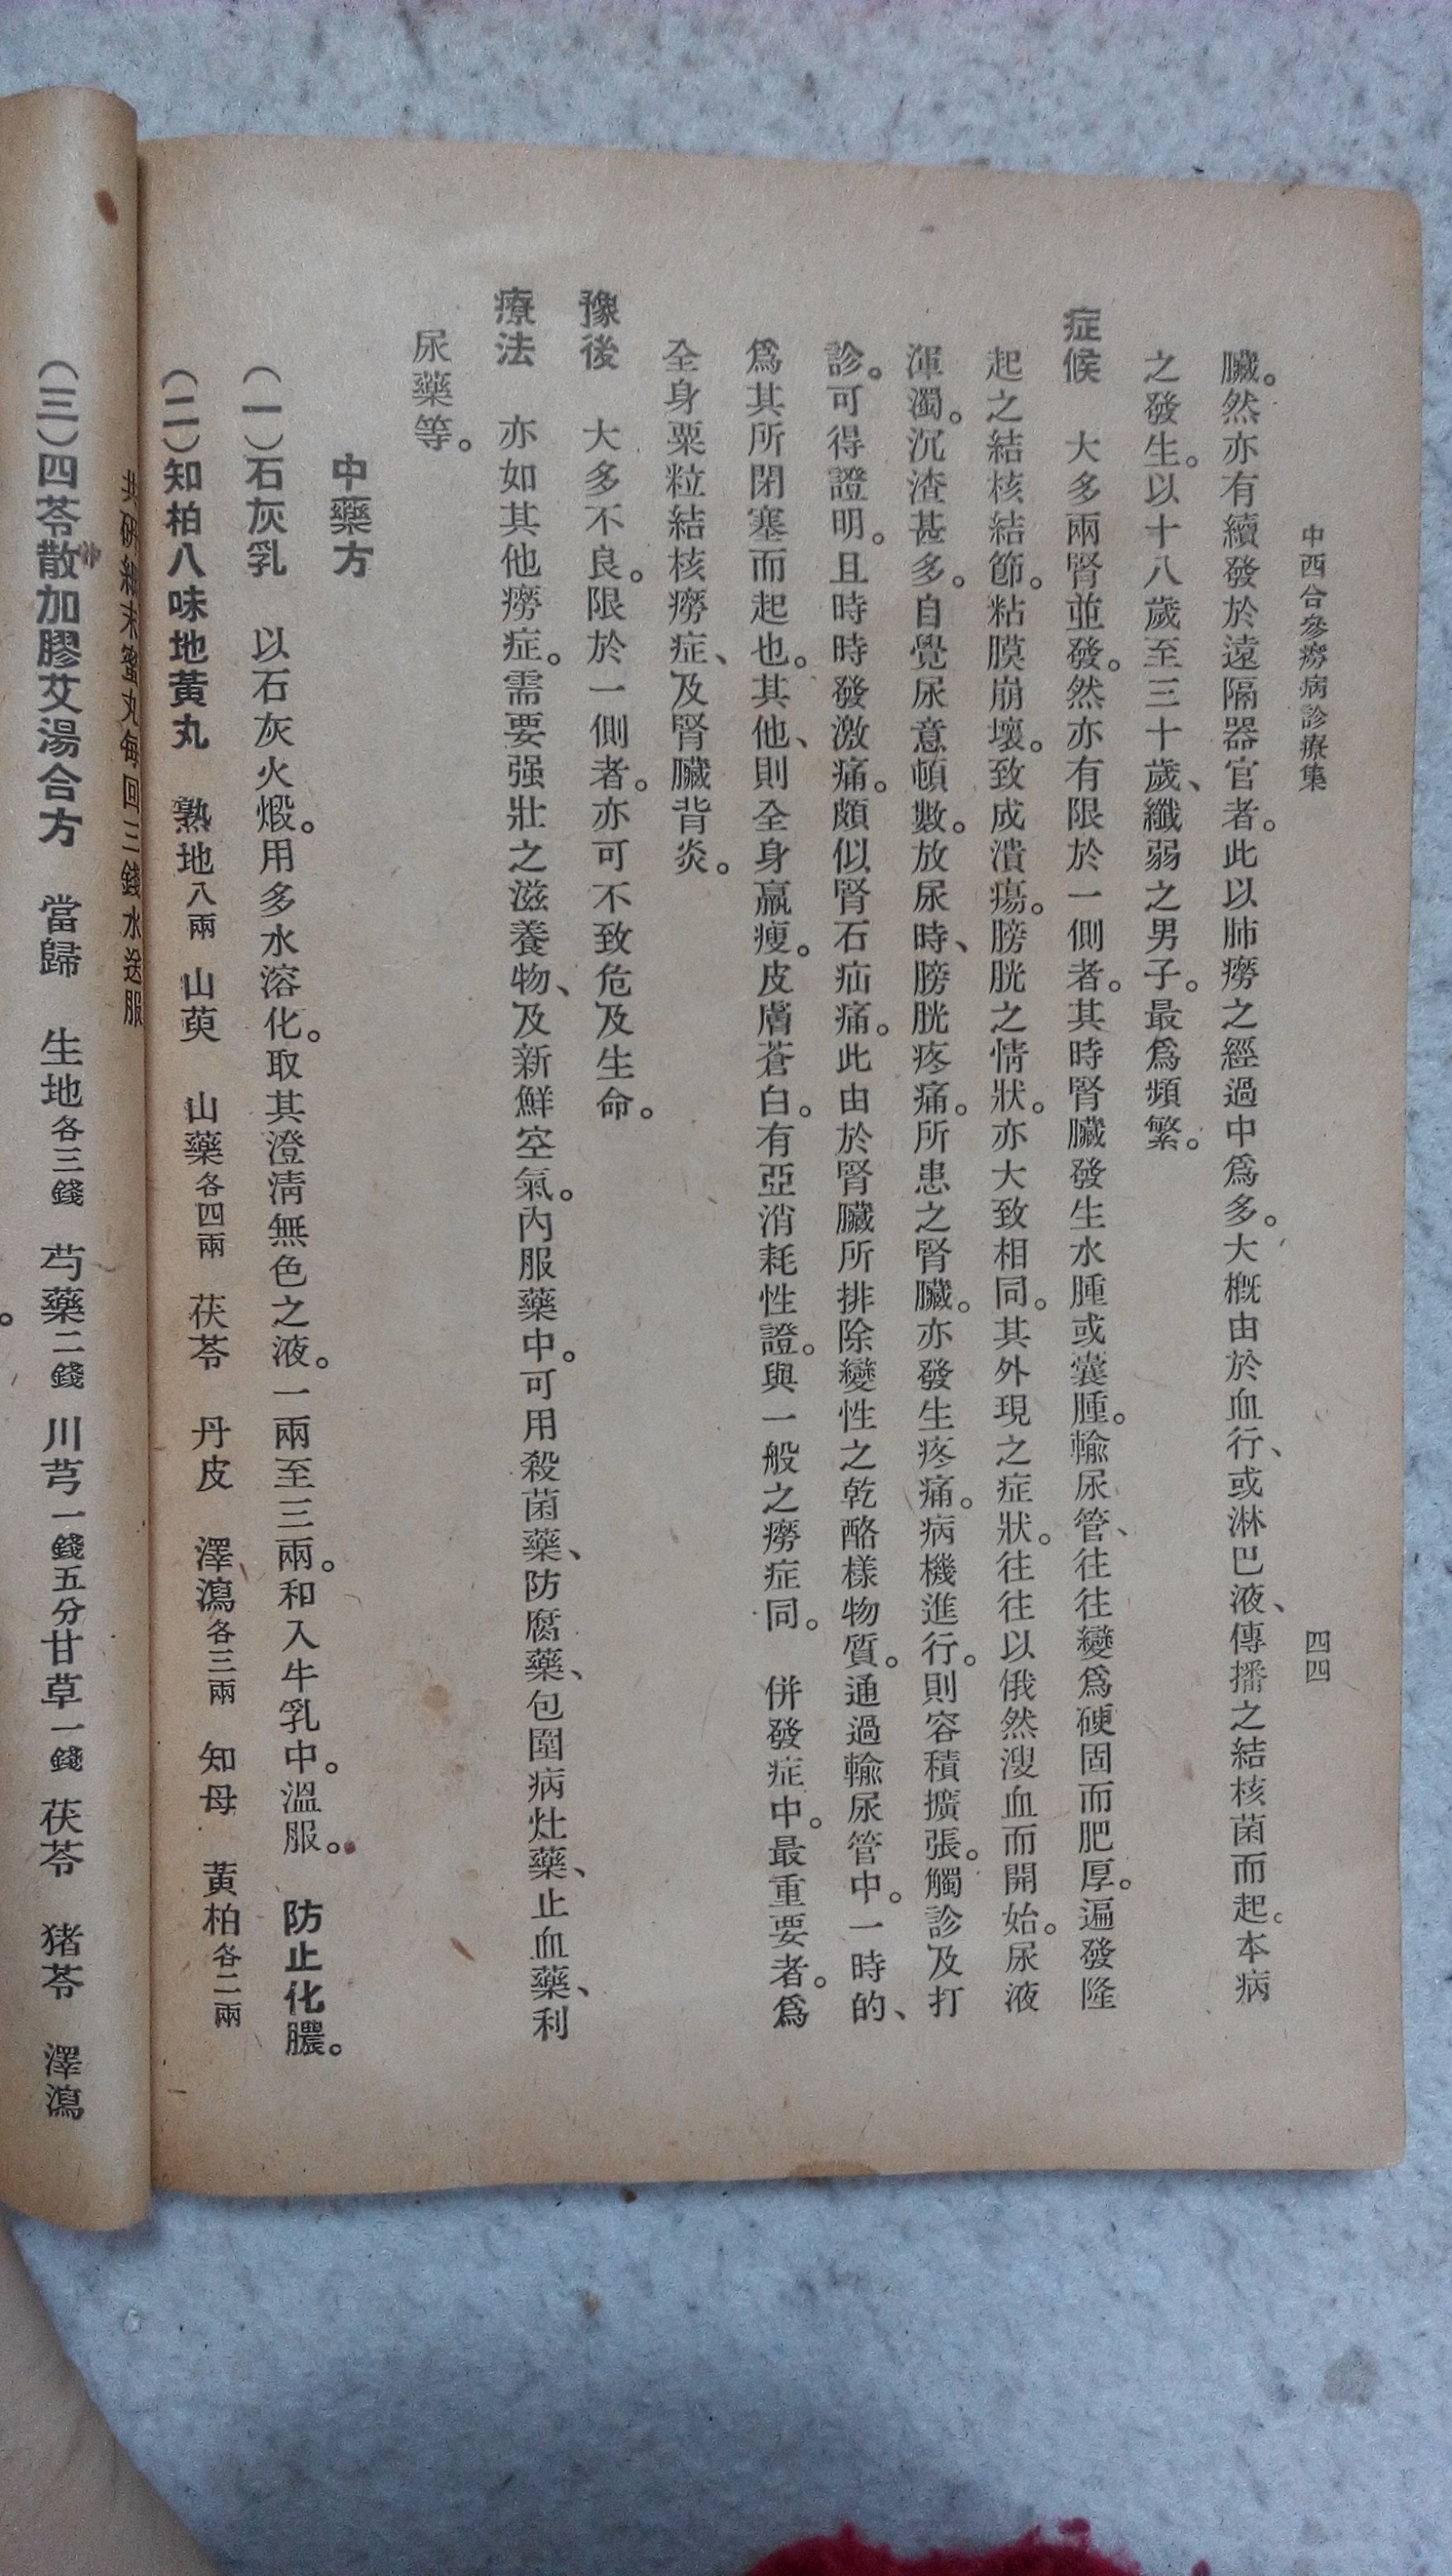 中西合參癆病診療集
四四
臟。然亦有續發於遠隔器官者。此以肺癆之經過中爲多。大概由於血行、或淋巴液、傳播之結核菌而起。本病
之發生。以十八歲至三十歲、纖弱之男子。最爲頻繁。
症候　大多兩腎並發。然亦有限於一側者。其時腎臟發生水腫或囊腫。輸尿管、往往變爲硬固而肥厚。遍發隆
起之結核結節。粘膜崩壞。致成潰瘍。膀胱之情狀。亦大致相同。其外現之症狀。往往以俄然溲血而開始。尿液
渾濁。沉渣甚多。自覺尿意頓數。放尿時、膀胱疼痛。所患之腎臟。亦發生疼痛。病機進行。則容積擴張。觸診及打
診。可得證明。且時時發激痛。頗似腎石疝痛。此由於腎臟所排除變性之乾酪樣物質。通過輸尿管中。一時的、
爲其所閉塞而起也。其他、則全身羸瘦。皮膚蒼白。有亞消耗性證。與一般之癆症同。　併發症中。最重要者。爲
全身粟粒結核癆症、及腎臟背炎。
豫後　大多不良。限於一側者。亦可不致危及生命。
療法　亦如其他癆症。需要强壯之滋養物、及新鮮空氣。內服藥中。可用殺菌藥、防腐藥、包圍病灶藥、止血藥、利
尿藥等。
中藥方
（一）石灰乳　以石灰火煅。用多水溶化。取其澄淸無色之液。一兩至三兩。和入牛乳中。溫服。　防止化膿。
（二）知柏八味地黃丸　熟地八兩　山萸　山藥各四兩　茯苓　丹皮　澤瀉各三兩　知母　黃柏各二兩
共硏細末蜜丸每回三錢水送服
（三）四苓散加膠艾湯合方　當歸　生地各三錢　芍藥二錢　川芎一錢五分甘草一錢　茯苓　猪苓　澤瀉